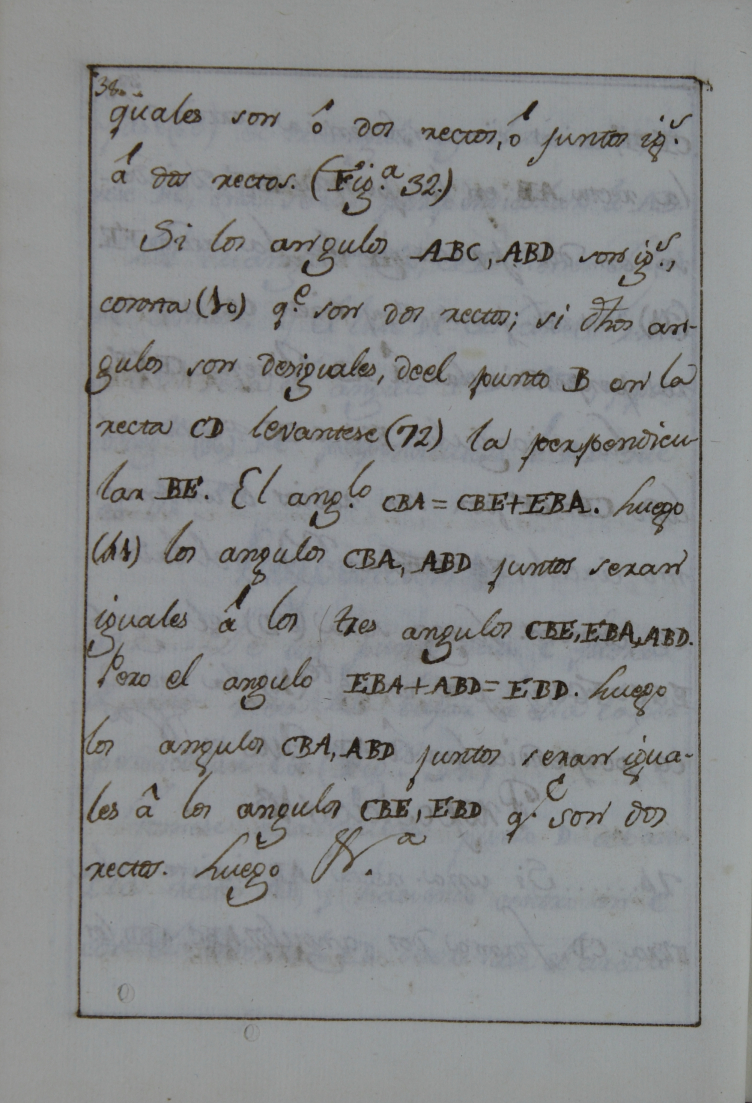 38.
quales son ô dos rectos, ô juntos ig.s
â dos rectos. (Fig.a 32.)
Si los angulos ABC, ABD son ig.s,
consta (10) q.e son dos rectos; si dhos an-
gulos son desiguales, de el punto B en la
recta CD levantese (72) la perpendicu-
lar BE. El ang.lo CBA = CBE + EBA. Luego
(11) los angulos CBA, ABD juntos seran
iguales â los tres angulos CBE, EBA, ABD.
Pero el angulo EBA + ABD = EBD. Luego
los angulos CBA, ABD juntos seran igua-
les â los angulos CBE, EBD q.e son dos
rectos. Luego